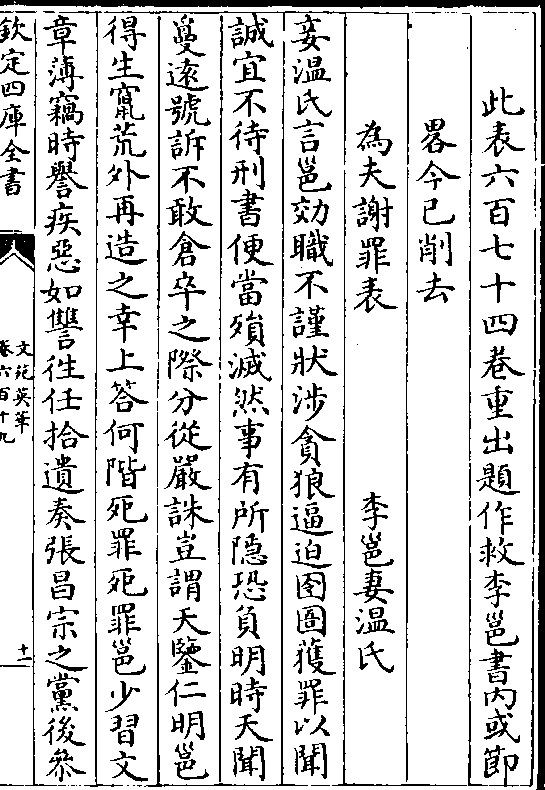 此表六百七十四巷重出題作救李邕書內或節
畧今已削去
為夫謝罪表　李邕妻温氏
妾温氏言邕効職不謹狀涉貪狼逼迫囹圄獲罪以聞
誠宜不待刑書便當殞滅然事有所隐恐負明時天聞
敻遠號訴不敢倉卒之際分從嚴誅豈謂天鑒仁明邕
得生竄荒外再造之幸上答何階死罪死罪邕少習文
章薄竊時譽疾惡如讐徃任拾遺奏張昌宗之黨後叅
欽定四庫全書
文苑英華
卷六百十九
十一